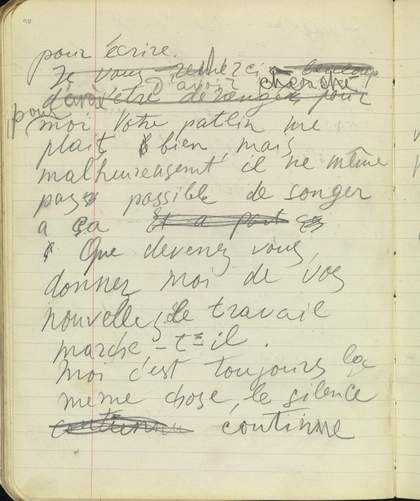 pour écrire.
Je vous remercie beaucoup
d'avoir cherché
d'être dérangé pour
pour moi votre patlin me
plait bien, mais
malheureusement il ne même
pas possible de songer
a ça Et a part ça
Que devenez vous,
donnez moi de vos
nouvelles, Le travail
marche-t-il.
Moi c'est toujours la
même chose, le silence
continue continue